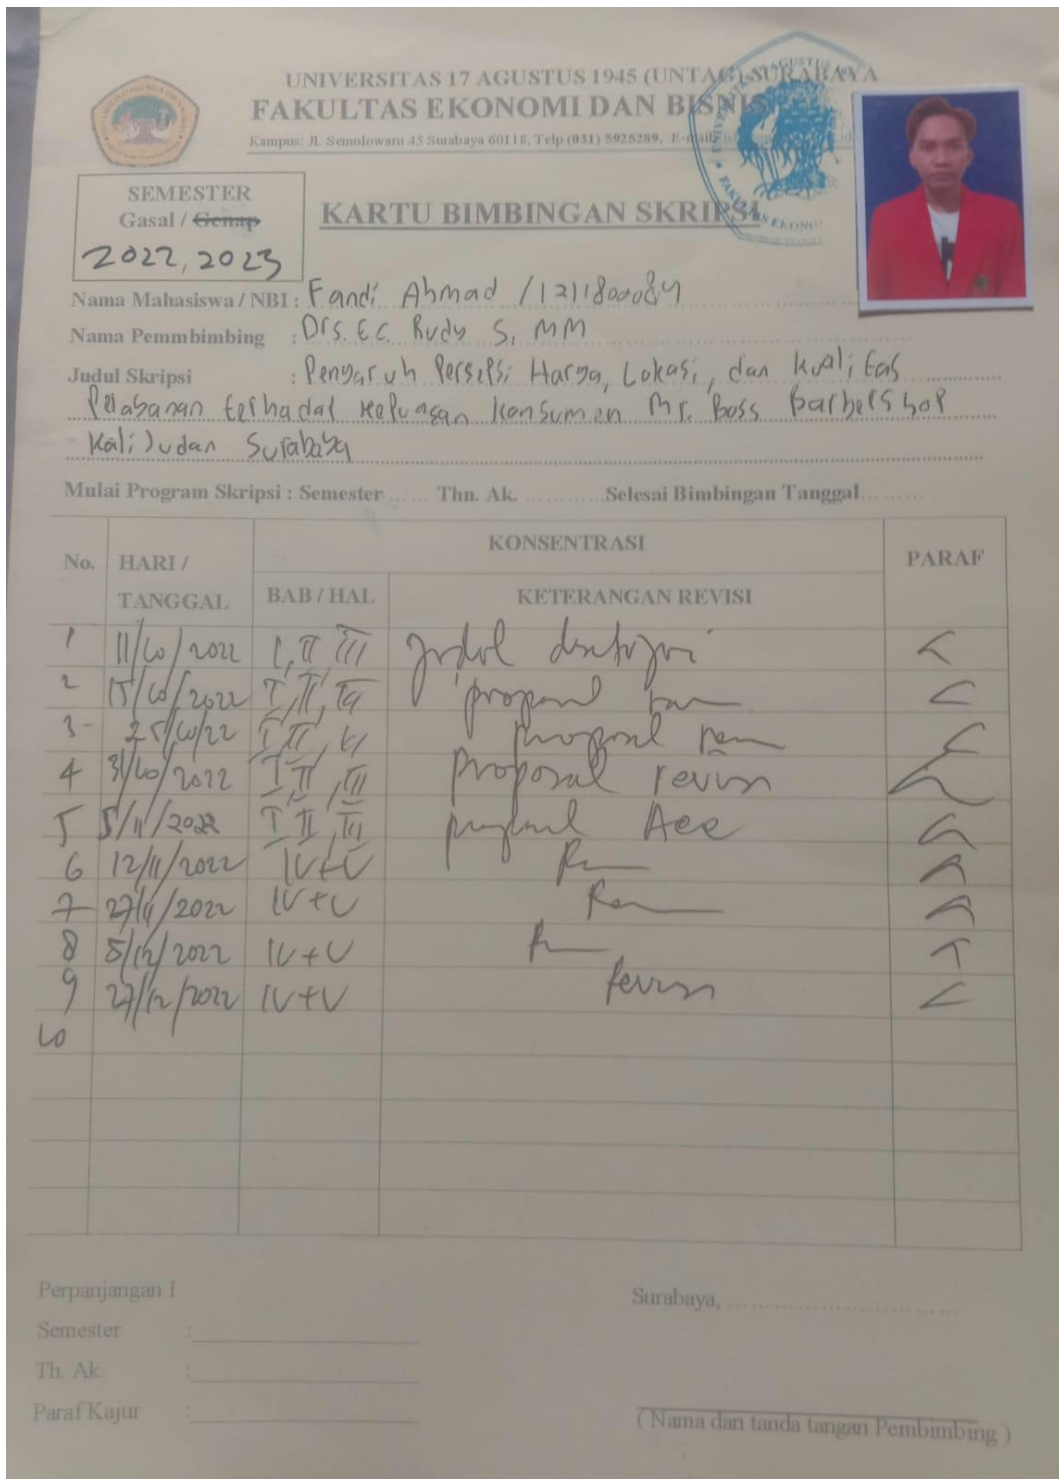 UNIVERSITAS 17 AGUSTUS 1945 (UNTAG) SURABAYA
FAKULTAS EKONOMI DAN BISNIS
Kampus: Jl. Semolowaru 45 Surabaya 60118, Telp (031) 5925289, E-mail:
SEMESTER
Gasal / Genap
2022, 2023
KARTU BIMBINGAN SKRIPSI
Nama Mahasiswa / NBI : Fandi Ahmad / 1211800084
Nama Pemmbimbing : Drs. Ec. Rudy S, MM
Judul Skripsi : Pengaruh Persepsi Harga, Lokasi, dan Kualitas
Pelayanan terhadap Kepuasan Konsumen Mr. Boss Barbershop
Kalijudan Surabaya
Mulai Program Skripsi : Semester ...... Thn. Ak. ........... Selesai Bimbingan Tanggal.........
No. HARI / TANGGAL KONSENTRASI PARAF
BAB / HAL KETERANGAN REVISI
1 11/10/2022 I, II III judul disetujui
2 15/10/2022 I, II, III proposal
3 25/10/22 I II, III proposal
4 31/10/2022 I, II, III proposal revisi
5 5/11/2022 I II, III proposal Acc
6 12/11/2022 IV+V
7 27/11/2022 IV+V
8 5/12/2022 IV+V
9 27/12/2022 IV+V Revisi
10
Perpanjangan I
Surabaya, ..............................
Semester :
Th. Ak. :
Paraf Kajur :
( Nama dan tanda tangan Pembimbing )